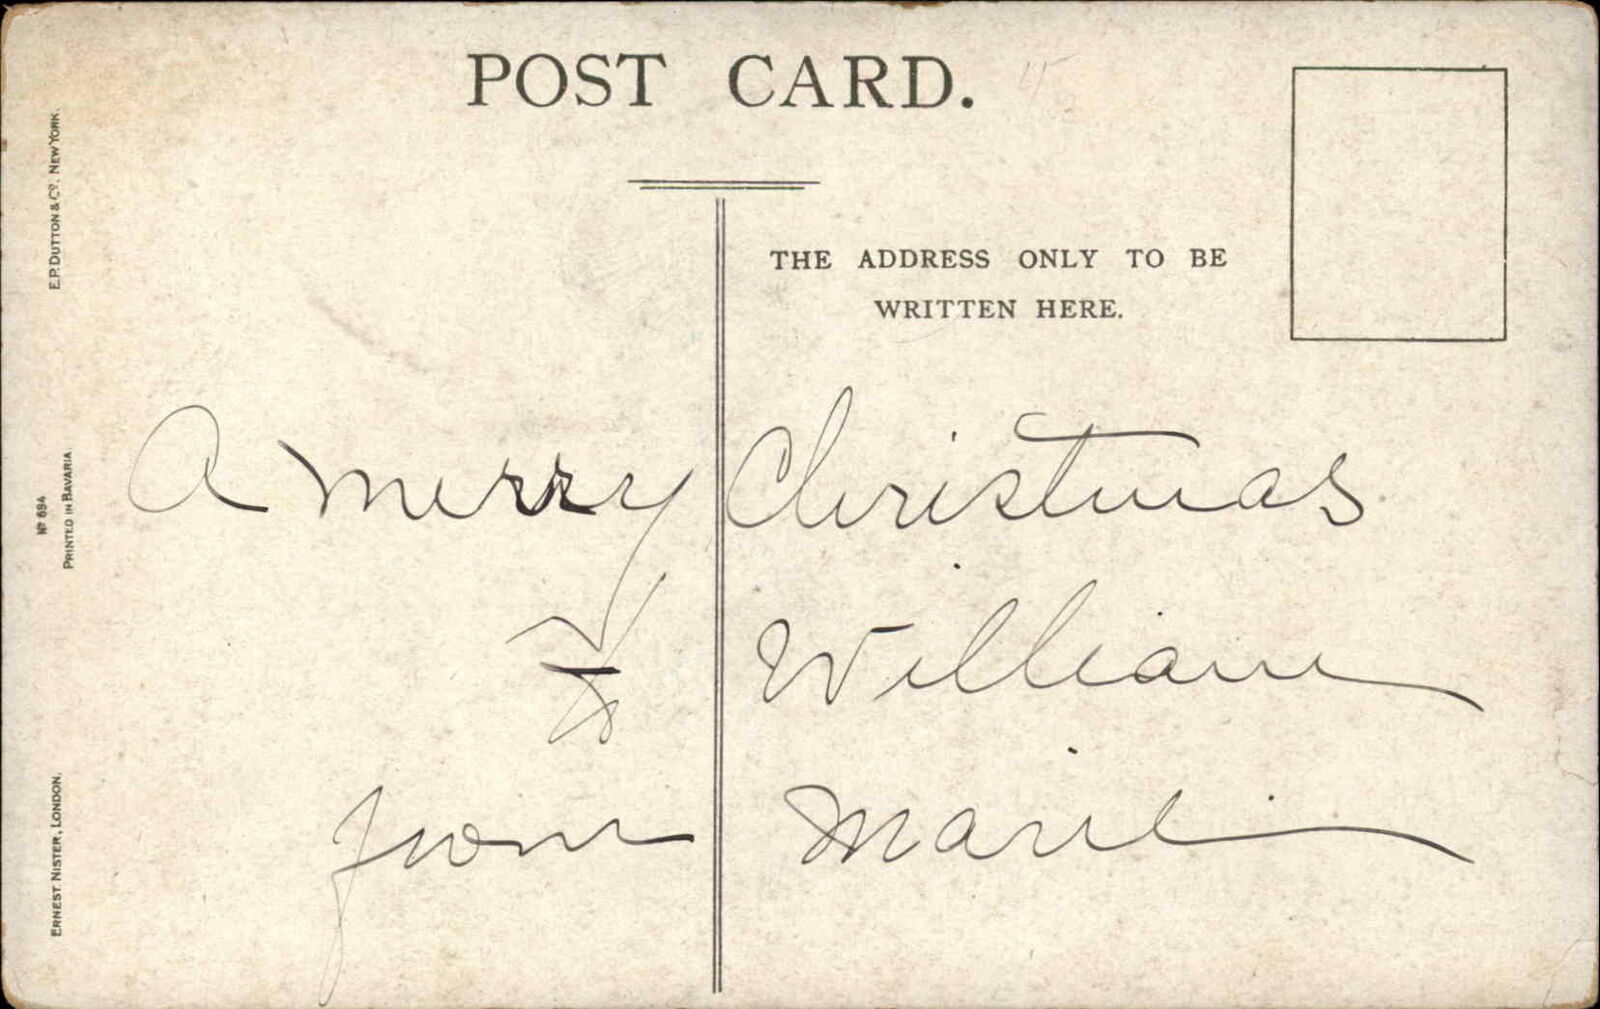 POST CARD.
THE ADDRESS ONLY TO BE
WRITTEN HERE.
E.P. DUTTON & Co. NEW YORK.
No 694
PRINTED IN BAVARIA.
ERNEST NISTER, LONDON.
A merry Christmas
William
from Marie